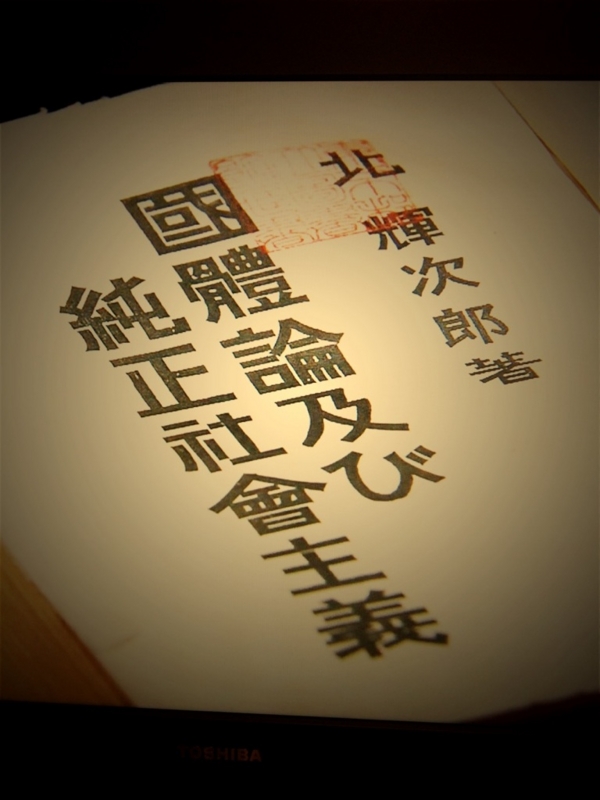 北輝次郎著
國體論及び
純正社會主義
TOSHIBA